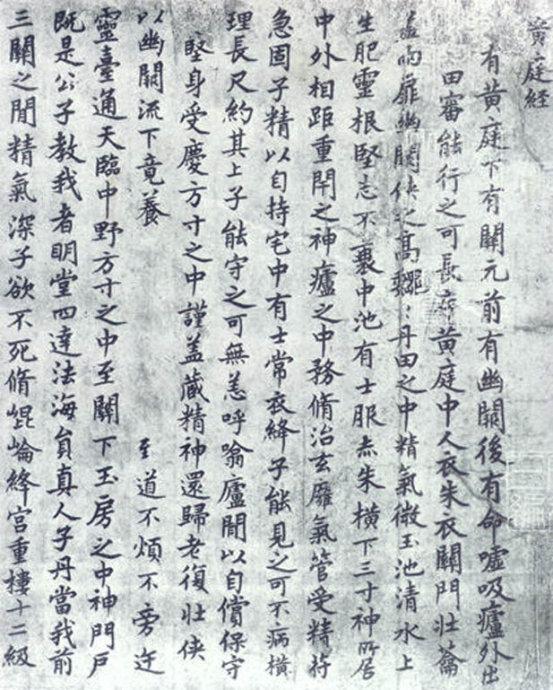 黃庭經
有黃庭下有關元前有幽闕後有命嘘吸廬外出
田審能行之可長存黃庭中人衣朱衣關門壯籥
蓋兩扉幽闕俠之高巍〻丹田之中精氣微玉池清水上
生肥靈根堅志不衰中池有士服赤朱橫下三寸神所居
中外相距重閇之神廬之中務脩治玄膺氣管受精符
急固子精以自持宅中有士常衣絳子能見之可不病橫
理長尺約其上子能守之可無恙呼噏廬間以自償保守
堅身受慶方寸之中謹蓋藏精神還歸老復壯俠
以幽闕流下竟養 至道不煩不旁迕
靈臺通天臨中野方寸之中至關下玉房之中神門戶
既是公子教我者明堂四達法海員真人子丹當我前
三關之間精氣深子欲不死脩崐崘絳宮重樓十二級